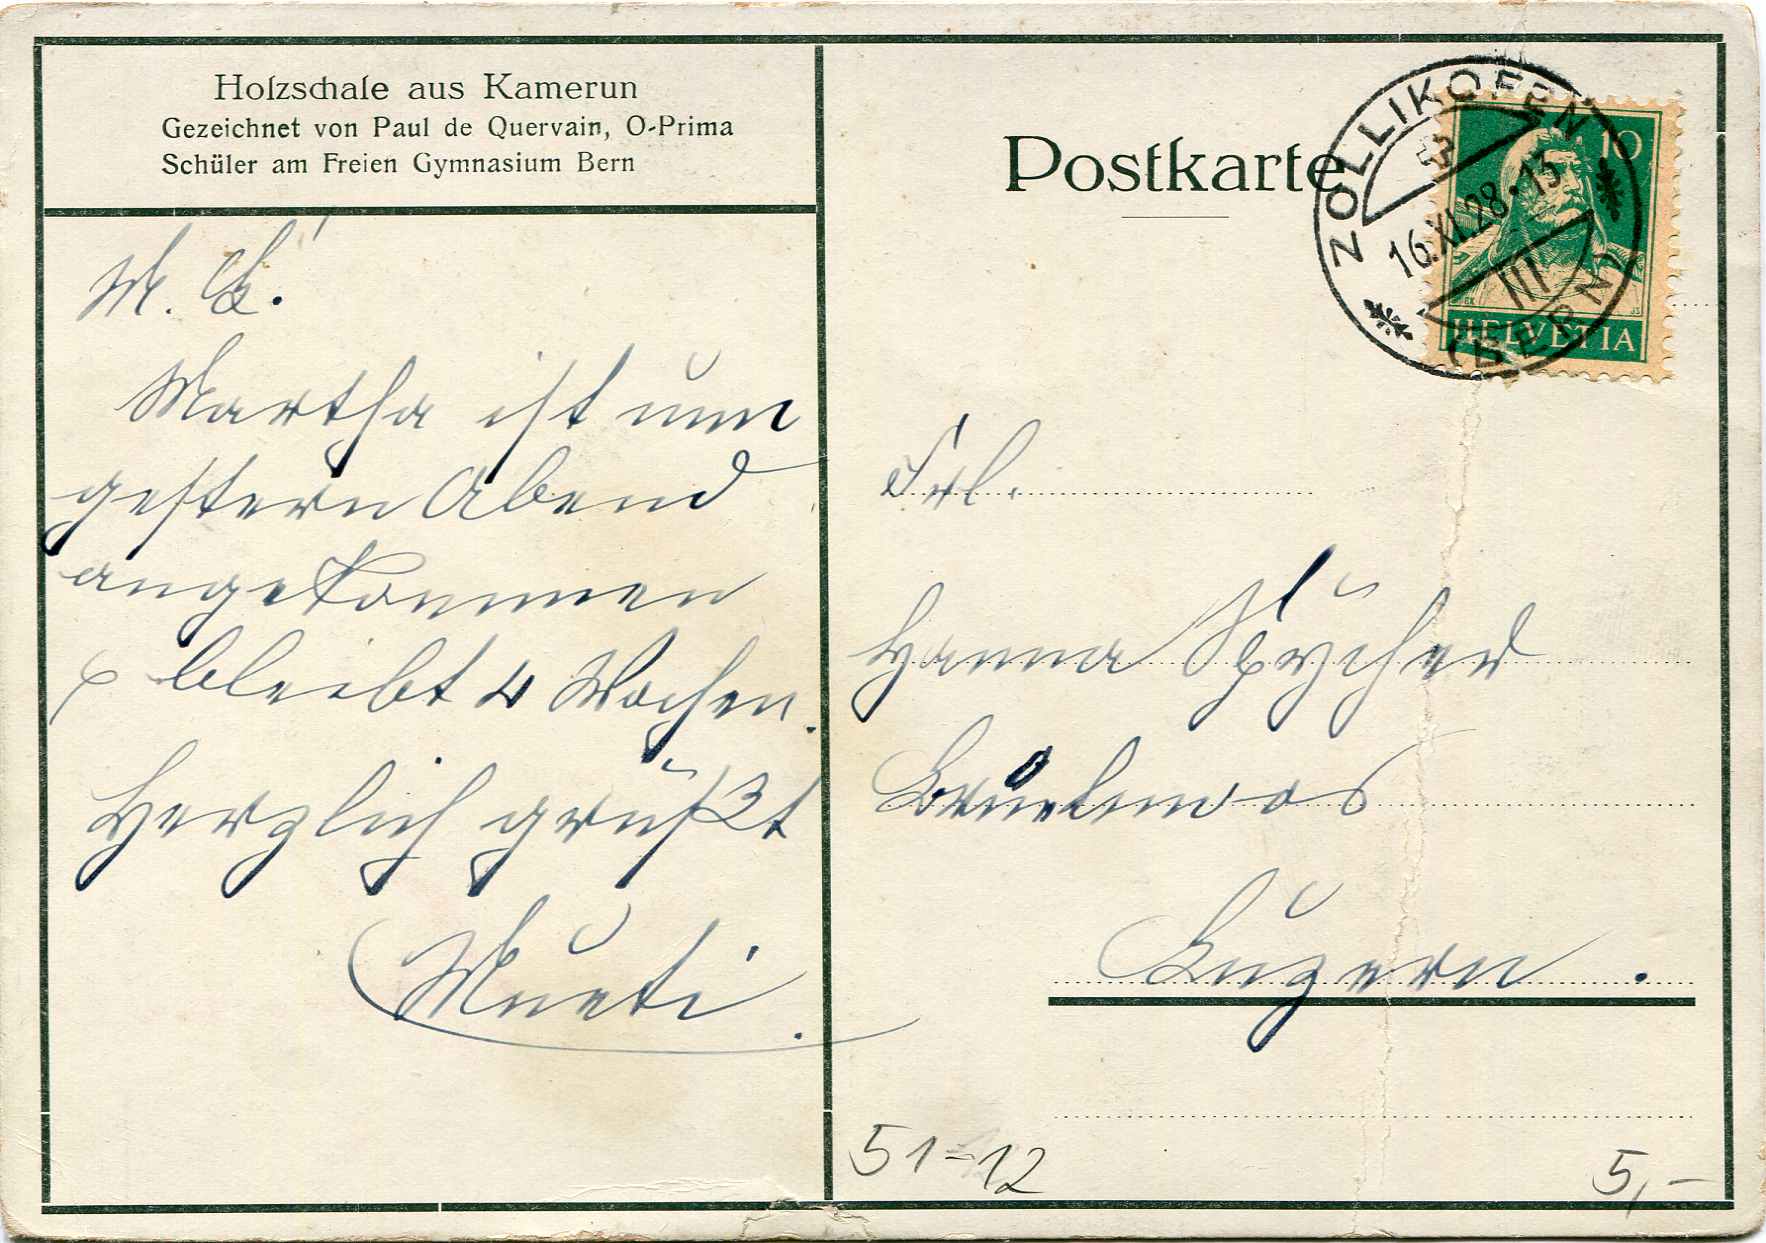 Holzschale aus Kamerun
Gezeichnet von Paul de Quervain, O-Prima
Schüler am Freien Gymnasium Bern
Postkarte
ZOLLIKOFEN
16.XI.28.-13
III
(BERN)
10
HELVETIA
M. L.
Martha ist nun
gestern Abend
angekommen
& bleibt 4 Wochen.
Herzlich grüßt
Mueti.
Frl.
Hanna Spycher
Luzern.
51-12
5,-